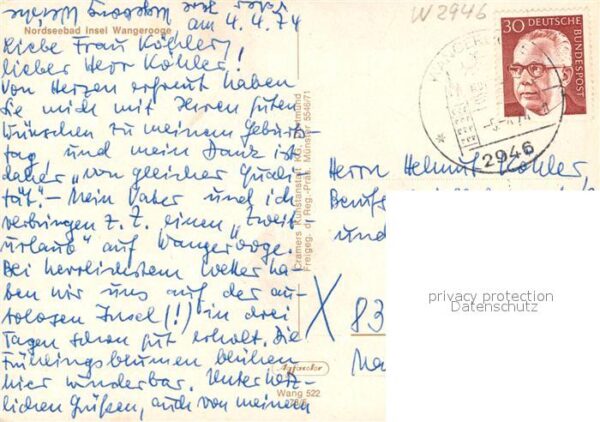 am 4.4.74
Nordseebad Insel Wangerooge
Liebe Frau Köhler,
lieber Herr Köhler!
Von Herzen erfreut haben
Sie mich mit Ihren guten
Wünschen zu meinem Geburts
tag, und mein Dank ist
daher "von gleicher Quali
tät". - Mein Vater und ich
verbringen z. Z. einen "Zweit
urlaub" auf Wangerooge.
Bei herrlichstem Wetter ha-
ben wir uns auf der au-
tolosen Insel (!) in drei
Tagen schon gut erholt. Die
Frühlingsblumen blühen
hier wunderbar. Unter herz-
lichen Grüßen, auch von meinem
Cramers Kunstanstalt KG, Dortmund
Freigeg. d. Reg.-Präs. Münster 5548/71
Agfacolor
Wang 522
W 2946
30 DEUTSCHE
BUNDESPOST
2946
Herrn Helmut Köhler,
und
X 83
privacy protection
Datenschutz